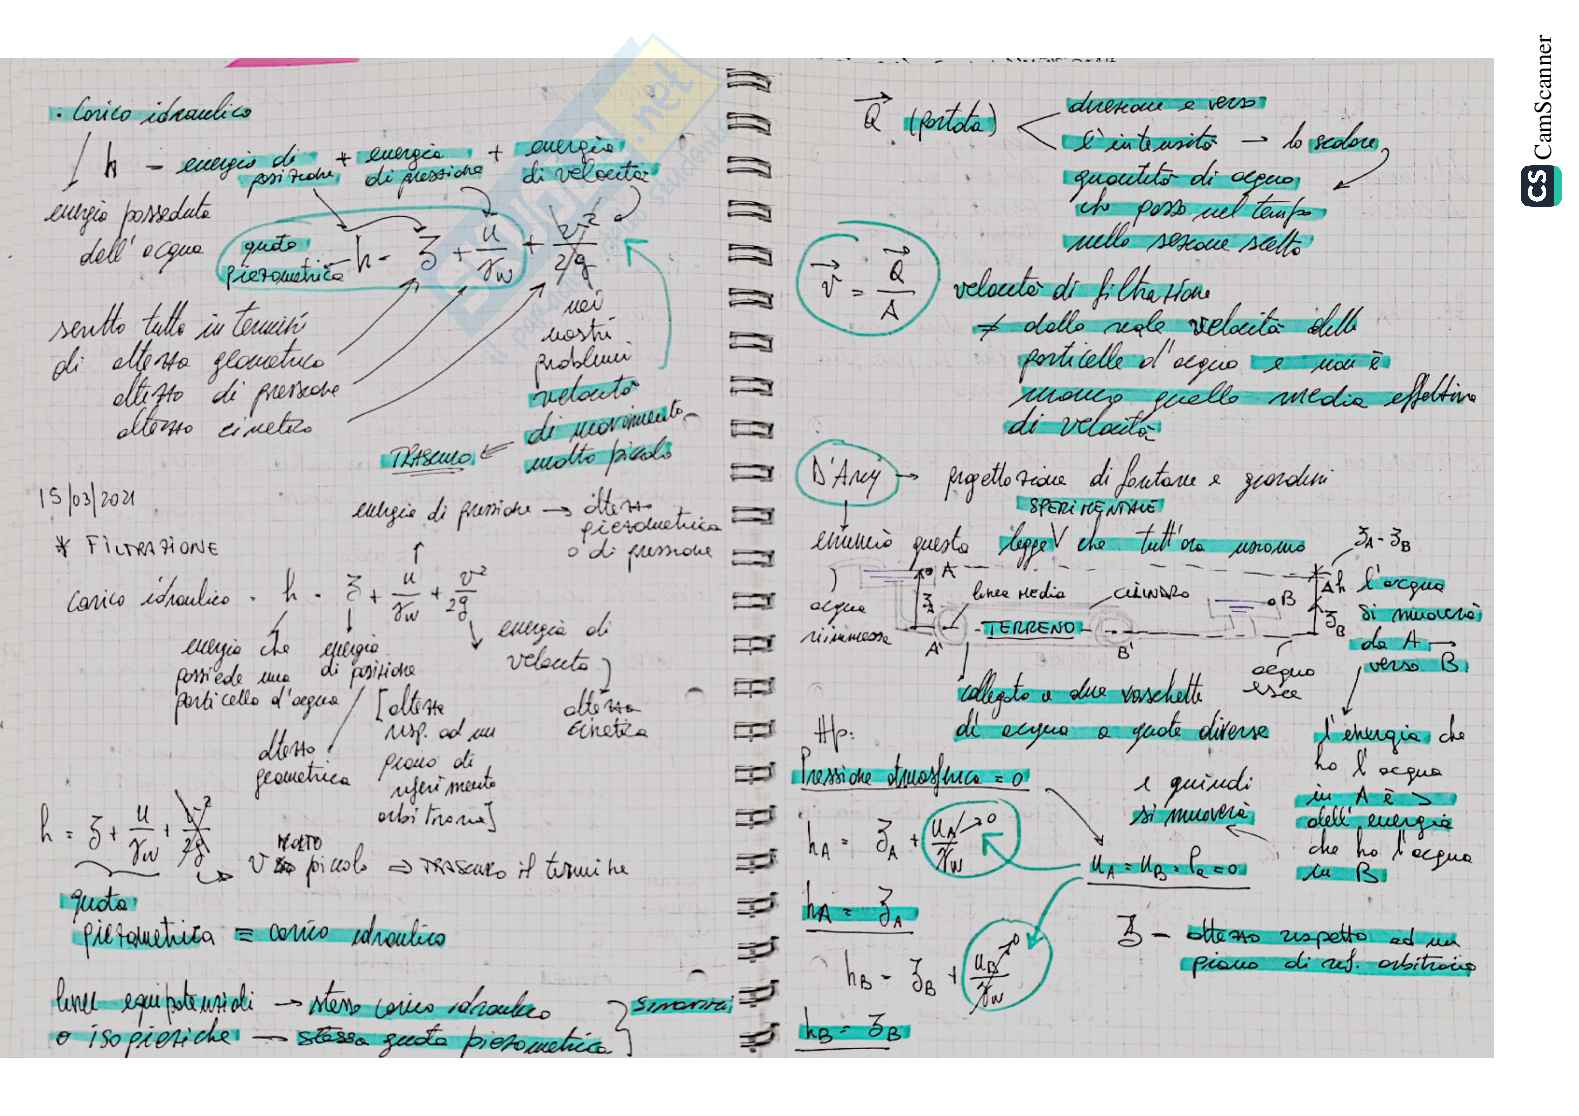 · Carico idraulico
h = energia di posizione + energia di pressione + energia di velocità
energia posseduta
dell'acqua
quota
piezometrica
h = z + u/γw + v²/2g
scritto tutto in termini
di altezza geometrica
altezza di pressione
altezza cinetica
nei
nostri
problemi
velocità
di movimento
molto piccola
TRASCURO
15/03/2021
energia di pressione → altezza
piezometrica
o di pressione
* FILTRAZIONE
Carico idraulico = h = z + u/γw + v²/2g
energia che
possiede una
particella d'acqua
energia
di posizione
energia di
velocità
altezza
geometrica
[altezza
risp. ad un
piano di
riferimento
arbitrario]
altezza
cinetica
h = z + u/γw + v²/2g
v MOLTO piccolo ⇒ TRASCURO il termine
quota
piezometrica ≡ carico idraulico
linee equipotenziali → stesso carico idraulico
o isopieziche → stessa quota piezometrica
SINONIMI
Q (portata)
direzione e verso
l'intensità → lo scalare
quantità di acqua
che passa nel tempo
nella sezione scelta
v = Q/A
velocità di filtrazione
≠ dalla reale velocità delle
particelle d'acqua e non è
nemmeno quella media effettiva
di velocità
D'Arcy → progettazione di fontane e giardini
SPERIMENTALE
enunciò questa legge V che tutt'ora usiamo
zA - zB
A
zA
linea media
CILINDRO
B
Δh
zB
acqua
immessa
A'
TERRENO
B'
acqua
esce
l'acqua
si muoverà
da A →
verso B
collegato a due vaschette
di acqua a quote diverse
Hp:
Pressione atmosferica = 0
l'energia che
ha l'acqua
in A è >
dell'energia
che ha l'acqua
in B
e quindi
si muoverà
hA = zA + uA/γw → 0
uA = uB = Pa = 0
hA = zA
z = altezza rispetto ad un
piano di rif. arbitrario
hB = zB + uB/γw → 0
hB = zB
CS CamScanner